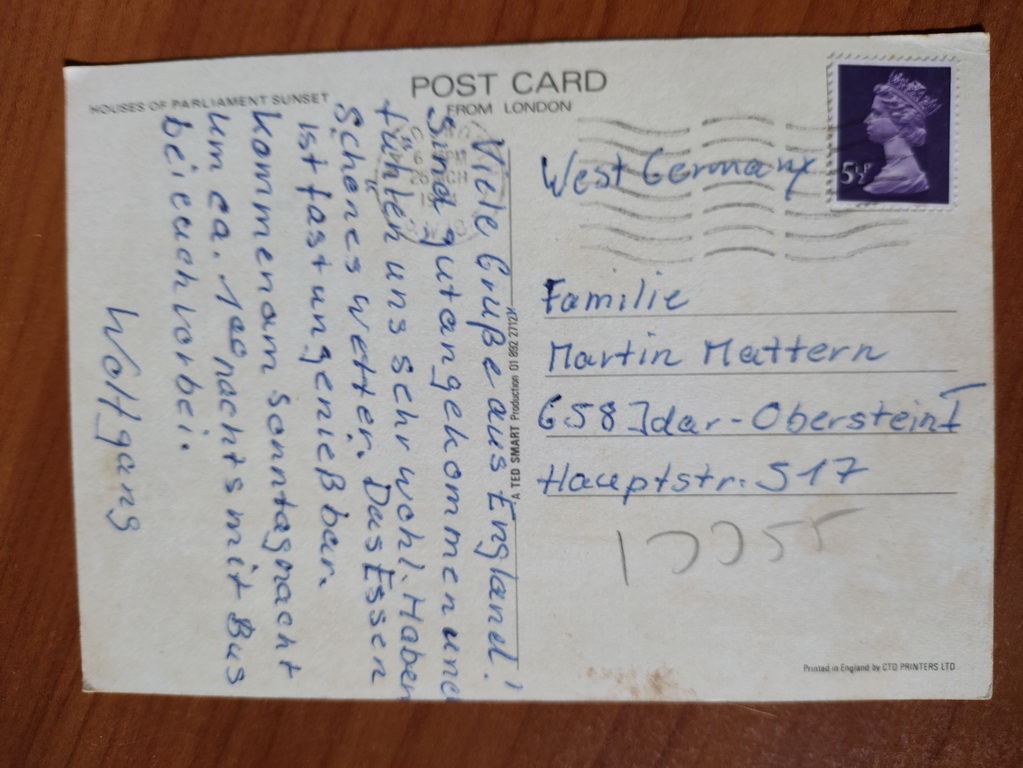 POST CARD
FROM LONDON
HOUSES OF PARLIAMENT SUNSET
Viele Grüße aus England!
Sind gut angekommen und
fühlen uns sehr wohl. Haben
Schönes wetter. Das Essen
ist fast ungenießbar.
Kommen am Sonntagnacht
um ca. 1⁰⁰ nachts mit Bus
bei euch vorbei.
Wolfgang
A TED SMART Production 01 892 2712
5½P
West Germany
Familie
Martin Mattern
658 Idar-Oberstein 1
Hauptstr. 517
Printed in England by CTD PRINTERS LTD